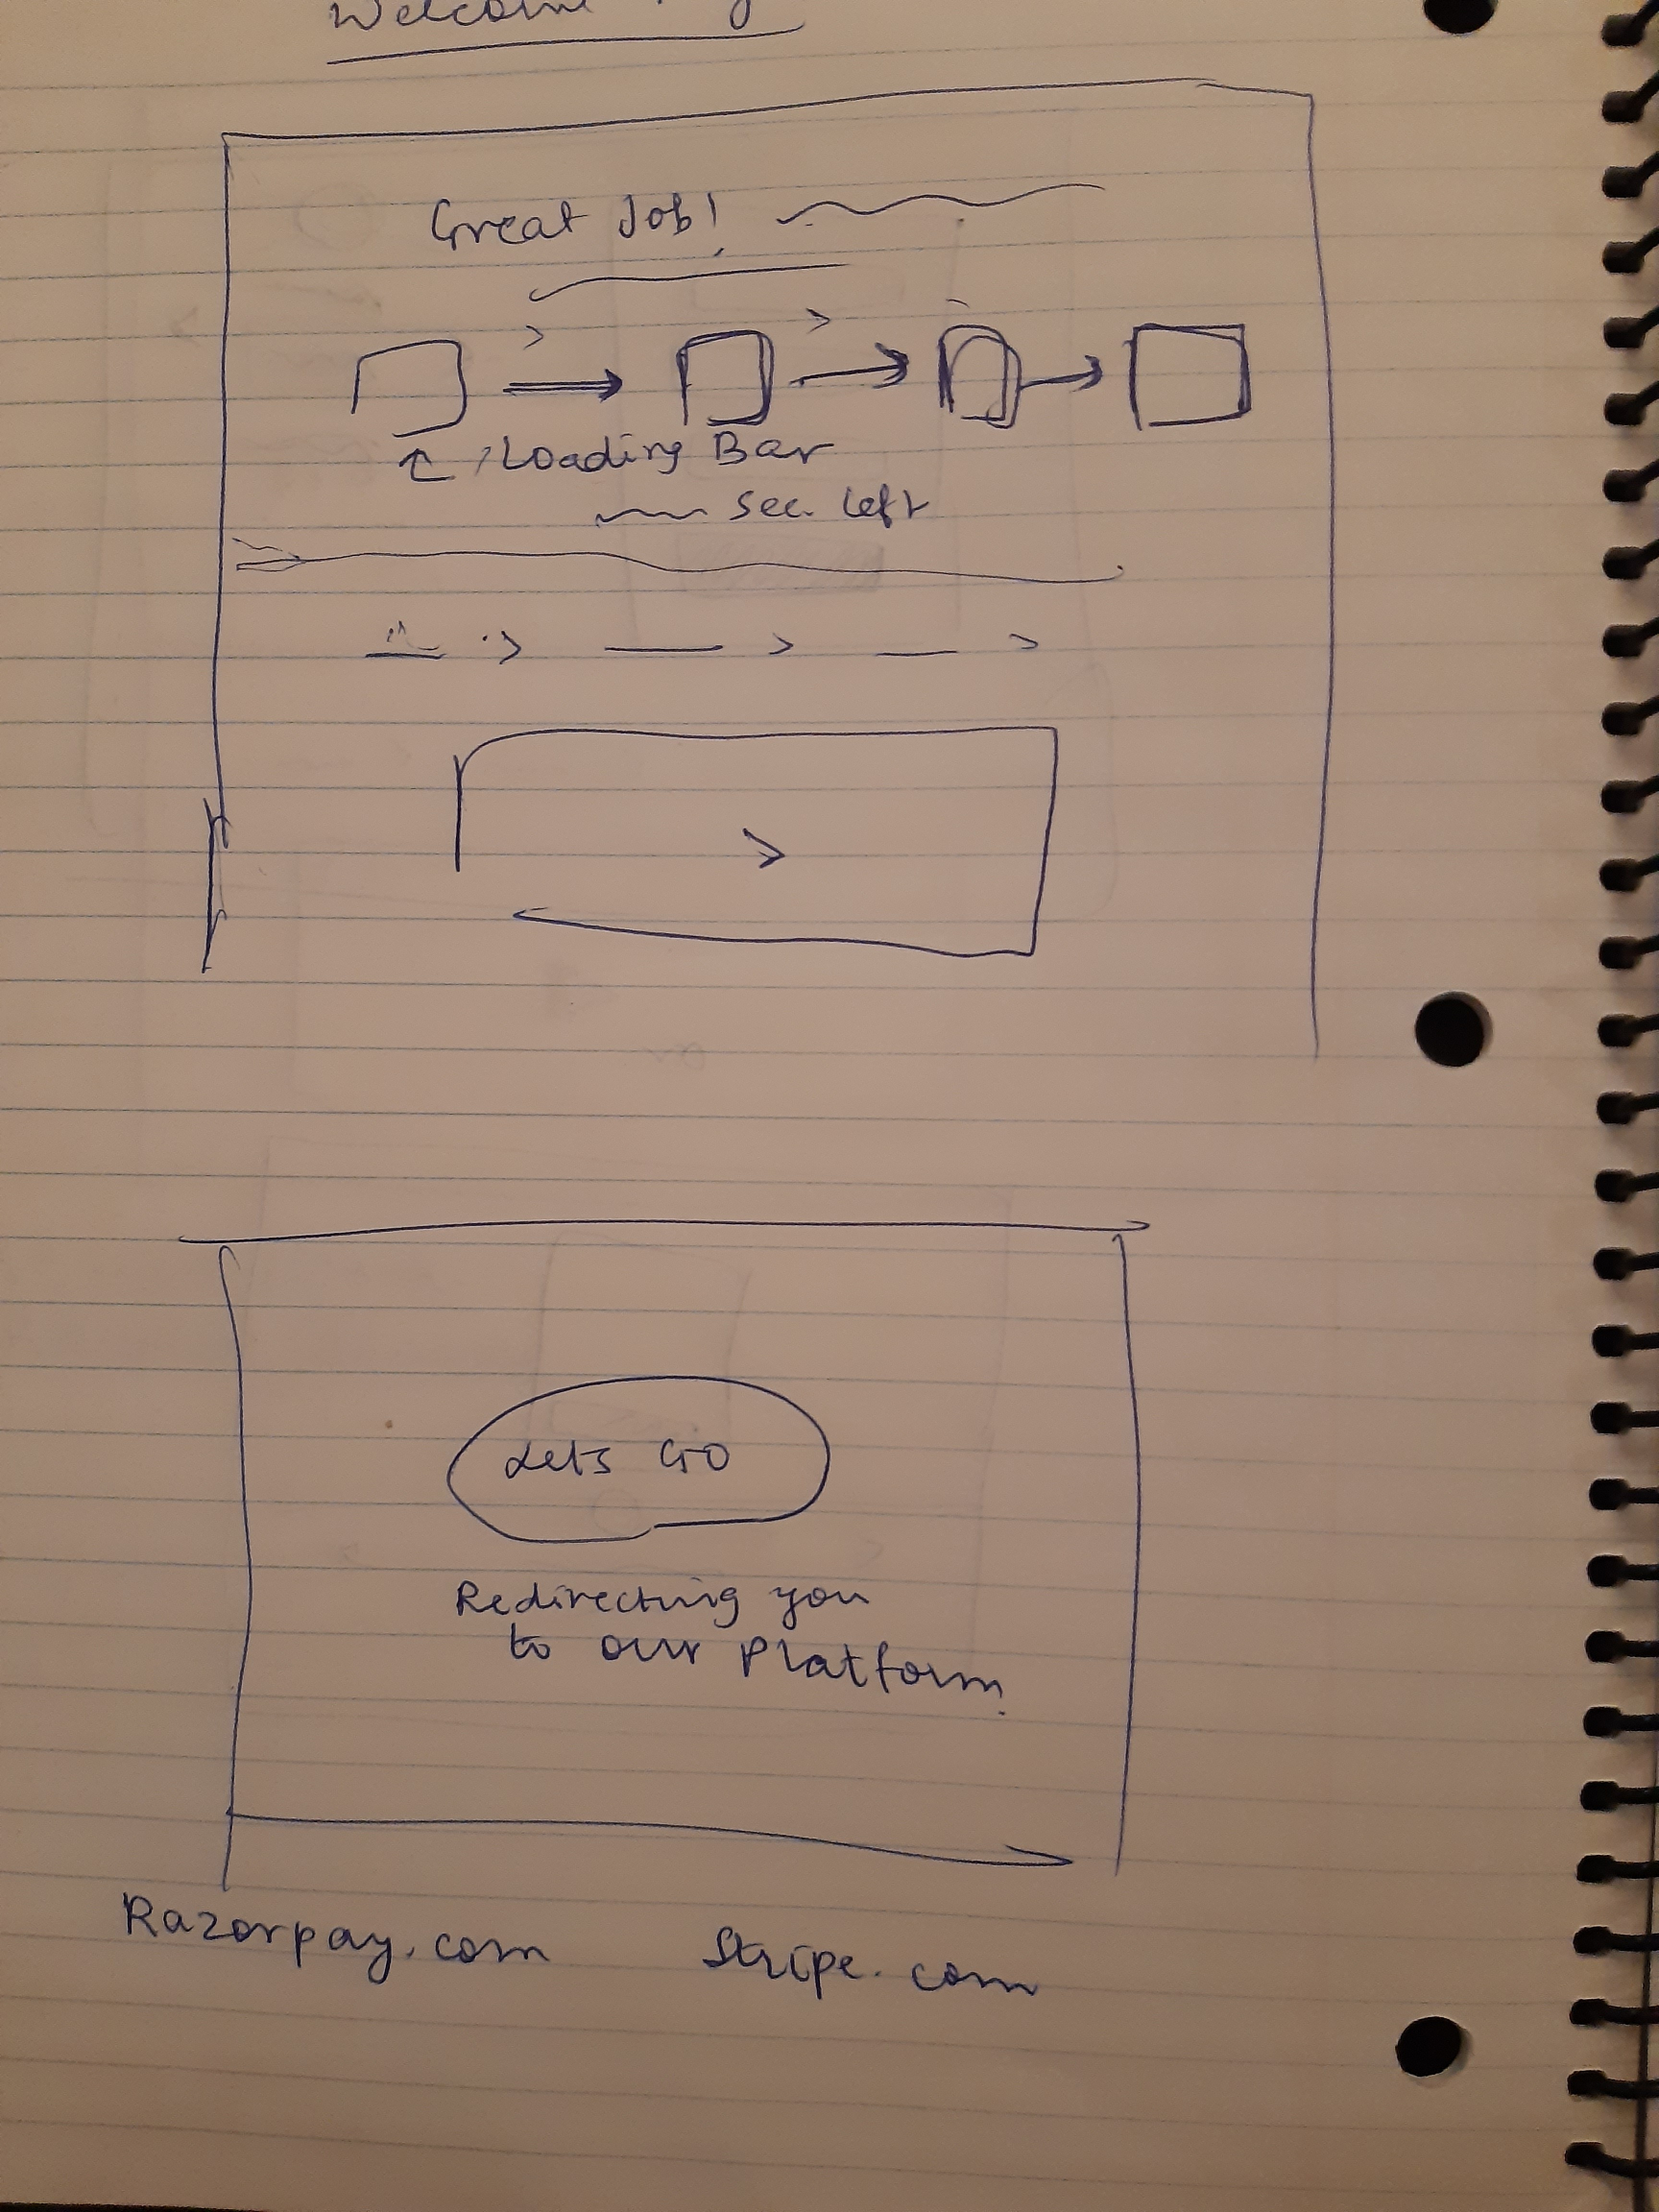 Welcome
Great Job!
Loading Bar
sec. left
Lets GO
Redirecting you
to our Platform.
Razorpay.com Stripe.com